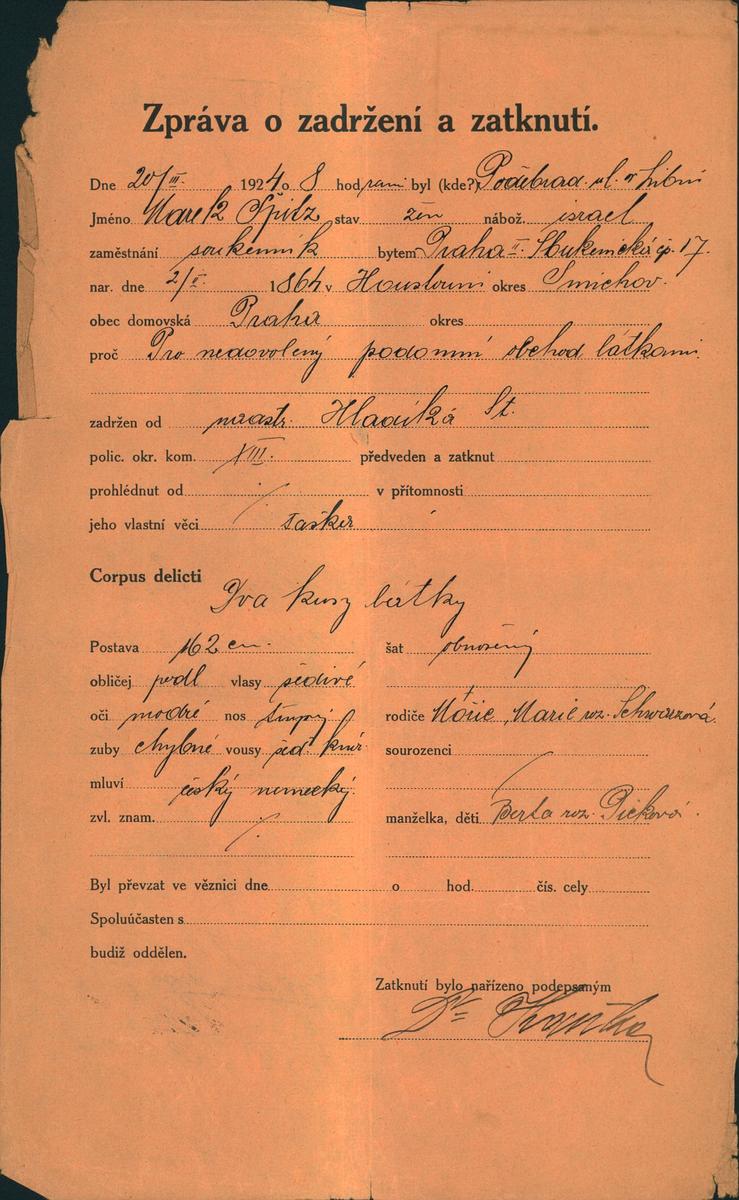 Zpráva o zadržení a zatknutí.
Dne 20/III. 1924 o 8 hod rani byl (kde?) Poděbrad. ul. v Libni
Jméno Marek Špitz stav žen nábož. israel
zaměstnání soukenník bytem Praha II. Soukenická čp. 17.
nar. dne 2/II. 1864 v Houslouni okres Smíchov.
obec domovská Praha okres
proč Pro nedovolený podomní obchod látkami.
zadržen od Hladíka St.
polic. okr. kom. XIII. předveden a zatknut
prohlédnut od v přítomnosti
jeho vlastní věci
Corpus delicti
Dva kusy látky
Postava 162 cm. šat obnošený
obličej podl vlasy šedivé
oči modré nos rodiče Marie roz. Schwarzová
zuby chybné vousy šed knír sourozenci
mluví český německý.
zvl. znam. manželka, děti Berta roz. Picková.
Byl převzat ve věznici dne o hod. čís. cely
Spoluúčasten s
budiž oddělen.
Zatknutí bylo nařízeno podepsaným
Dr